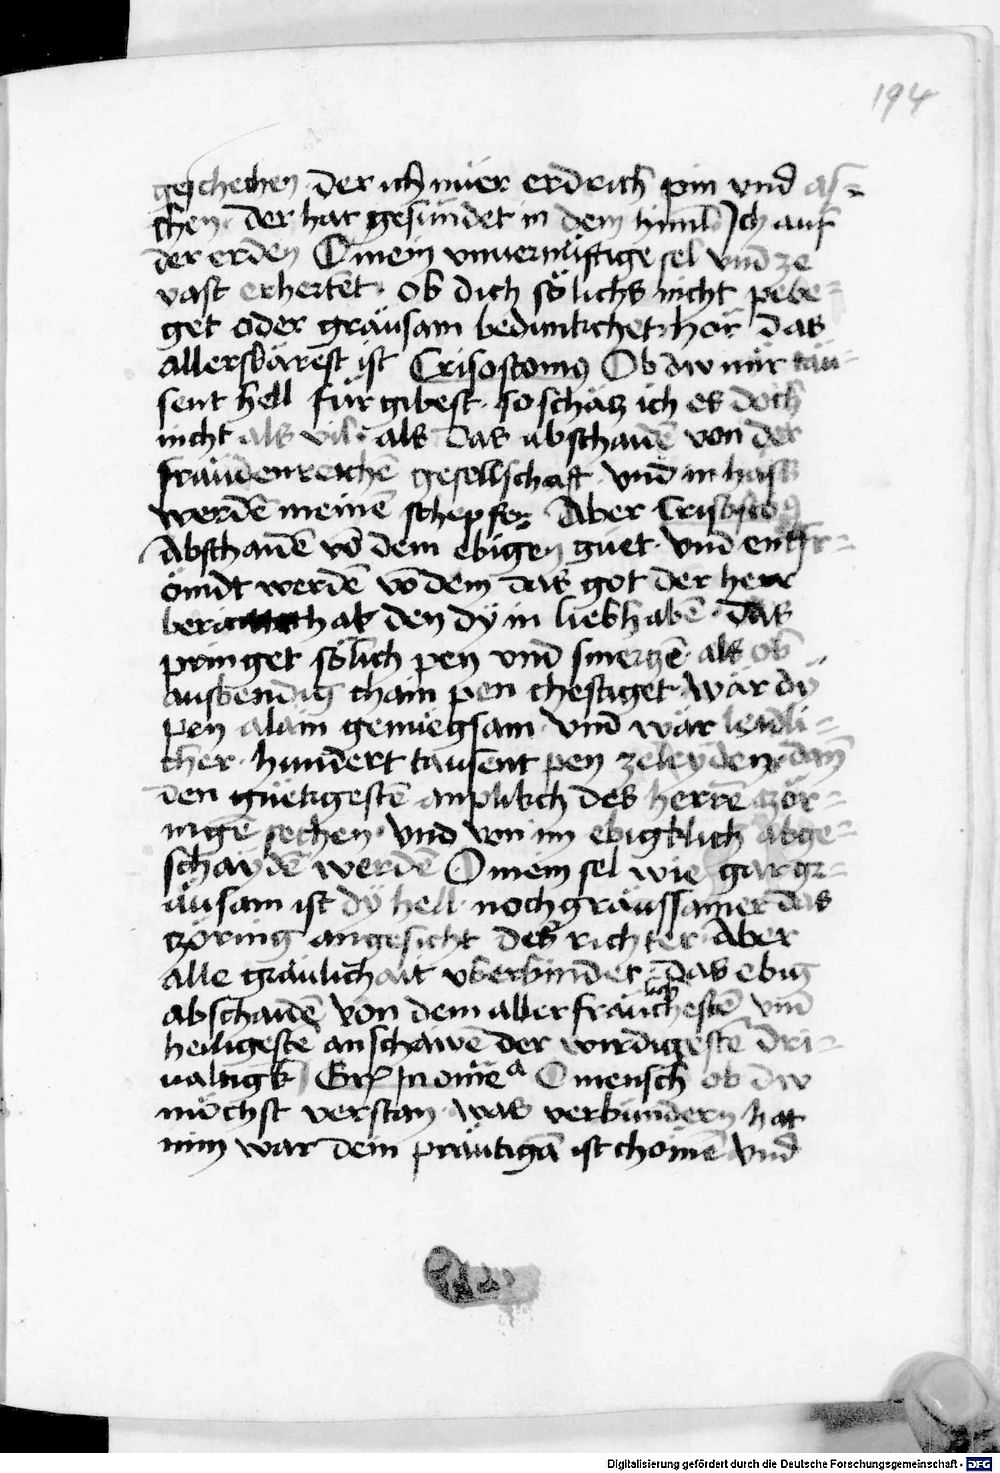 194
geschechen · der ich nüer erdrich pin vnd as-
chen · der hat gesündet in dem himl Ich auf
der erden O mein vnuernüftige sel vnd ze
vast erhertet · ob dich sölichs nicht pebe-
get oder gräusam bedunkchet · hör das
allerswärest ist Crisostomus Ob dw mir täu-
sent hell für gibest · so schäcz ich es doch
nicht als vil · als das abschaidē von der
fräudenreichē gesellschaft · vnd in hass
werdē meinē schepfer Aber Crisostom9
Abschaidē vō dem ebigen guet · vnd entfr-
ömdt werdē vō dem das got der herr
den dy in liebhabē · das
pringet sölich pen vnd smerczē · als ob
auswendig chain pen chestiget wär dÿ
pen alain genüegsam vnd wär leidli-
cher · hundert tausent pen ze leyden · dan̄
den güetigestē anplikch des herrē czör-
nigē sechen · vnd von im ebigklich abge-
schaydē werdē O mein sel wie gar gr-
äusam ist dÿ hell · noch gräussamer das
czöring angesicht des richter · Aber
alle gräulichait vberbindet · das ebig
abschaidē von dem aller fräuchestē vnd
lich
heiligestē anschawē der wirdigestē dri-
ualtigk O mensch ob dw
möchst verstan · was verbundern hat
nim war dein präutigā ist chömē vnd
Digitalisierung gefördert durch die Deutsche Forschungsgemeinschaft - DFG